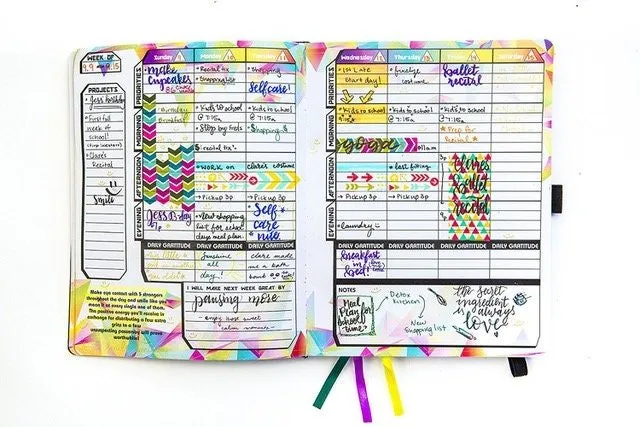 WEEK OF
9.9 9.15
PROJECTS
Jess birthday
First full
week of
school!
Clare's
Recital
Smile
PRIORITIES
MORNING
AFTERNOON
EVENING
Sunday
make
cupcakes
Birthday
Breakfast
Jess B-day
7p
DAILY GRATITUDE
this little
Monday
Recital tix
Shopping list
Kids to school
@ 7:15a
Stop by Fred's
recital tix
WORK on
Pickup 3p
New shopping
list for school
days meal plan
DAILY GRATITUDE
Sunshine
all
day!
Tuesday
Shopping
Selfcare!
Kids to school
@ 7:15a
Shopping
clare's costume
Pickup 3p
Self
care
nite
DAILY GRATITUDE
clare made
me a bath
bomb
Make eye contact with 5 strangers
throughout the day and smile like you
mean it at every single one of them.
The positive energy you'll receive in
exchange for distributing a few extra
grins to a few
unsuspecting passersby will prove
worthwhile!
I WILL MAKE NEXT WEEK GREAT BY
pausing more
enjoy those sweet
calm moments
PRIORITIES
MORNING
AFTERNOON
EVENING
Wednesday
1st Late
Start day!
Kids to school
11am
laundry
DAILY GRATITUDE
breakfast
in
bed!
Thursday
finalize
costume
Kids to school
@ 7:15a
last fitting
Pickup 3p
DAILY GRATITUDE
Friday
ballet
recital
Kids to school
@ 7:15a
Prep for
Recital
3p
Clare's
ballet
recital
DAILY GRATITUDE
Saturday
DAILY GRATITUDE
NOTES
Meal
Plan for
School
time
Detox
kitchen
New
Shopping list
the secret
ingredient
is always
love